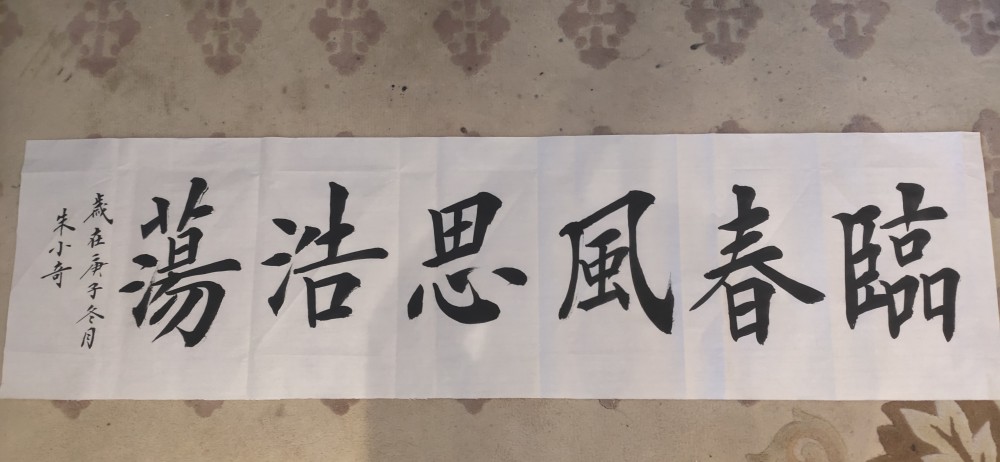 臨春風思浩蕩
歲在庚子冬月
朱小奇